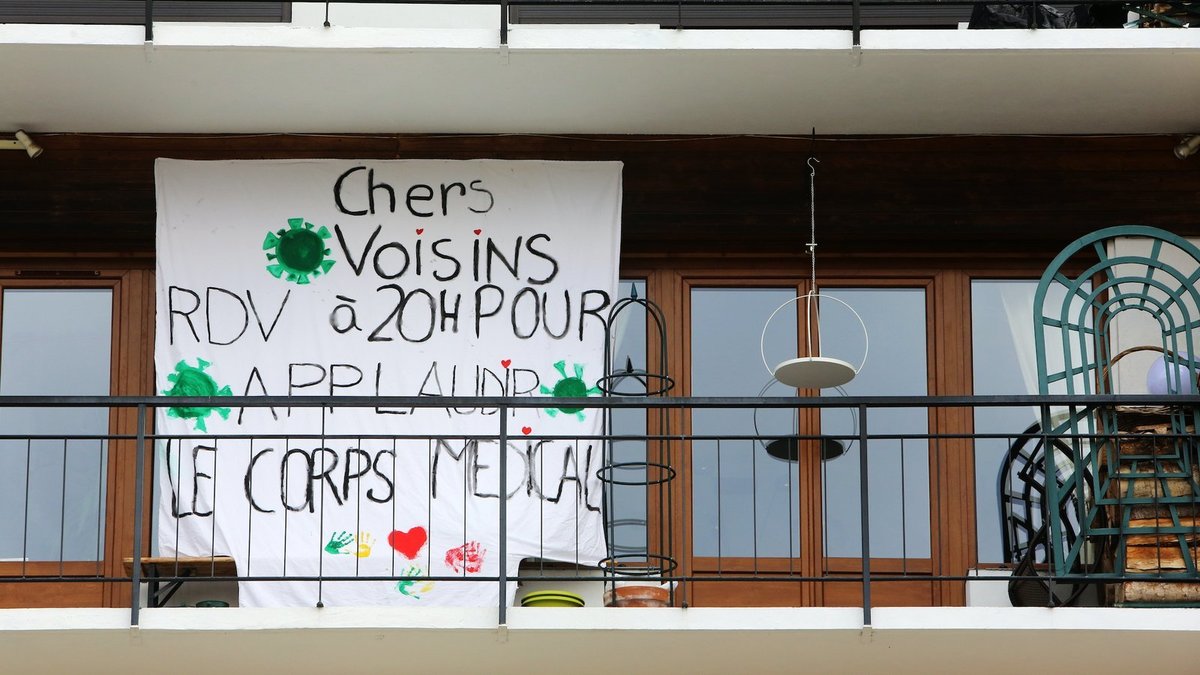 Chers
VoisiNS
RDV à 20H POUR
APPLAUDIR
LE CORPS MEDiCAL